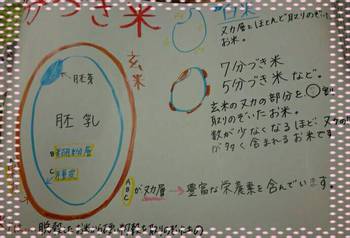 分づき米
白米
ヌカ層をほとんど取りのぞいた
お米。
玄米
7分づき米
5分づき米など。
胚芽
胚乳
玄米のヌカの部分を○割
取りのぞいたお米。
数が少なくなるほど、ヌカの
が多く含まれるお米です
B 糊粉層
C
B
C がヌカ層 → 豊富な栄養素を含んでいます。